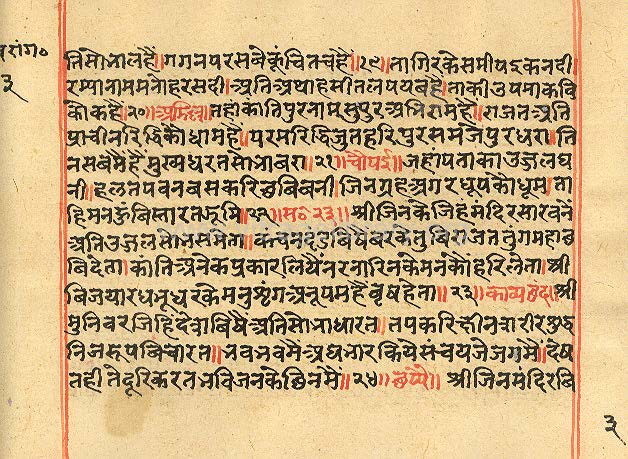 वरांग॰
३
तिसोभालहैं॥गगनपरसवेकूंचितचहैं॥१९॥तागिरकेसमीपइकनदी।
रम्पानाममनोहरसदी।अतिअथाहसीतलपयबहै॥ताकीउपमाकवि
कोकहै॥२०॥अडिल्ल॥तहांकांतिपुरनामसुपुरअभिरामहै॥राजतअति
प्राचीनरिद्धिकौधामहै॥परमरिद्धिजुतहरिपुरसमजेपुरधरा॥ति
नसबमैहैंमुख्यधरतसोभाबरा॥२१॥चौपई॥जहांपताकाउज्जलघ
नी॥हलतपवनबसकरिछबिबनी॥जिनग्रहअगरधूपकौधूम॥ता
हिमनकुंबिस्तारतझूमि॥२२॥स०२३॥श्रीजिनकेजिहमंदिरसारबनें
अतिउज्जलसोनसमेता॥कंचनदंडबिषैबरकेतुबिराजततुंगमहाछ
बिदेता॥कांतिअनेकप्रकारलियैंनरनारिनकेमनकौंहरिलेता॥श्री
बिजयारधभूधरकेमनुशृंगअनूपमहैवृषहेता॥२३॥काव्यछंद॥श्री
मुनिवरजिहिदेशबिषैंअतिसोभाधारत॥तपकरिछीनशरीरशुद्ध
निजरूपबिचारत॥भवभवमैंअघभारकियेसंचयजेजगमैं॥देष
तहीतेदूरिकरतभविजनकेछिनमैं॥२४॥छप्पै॥श्रीजिनमंदिरबि
३